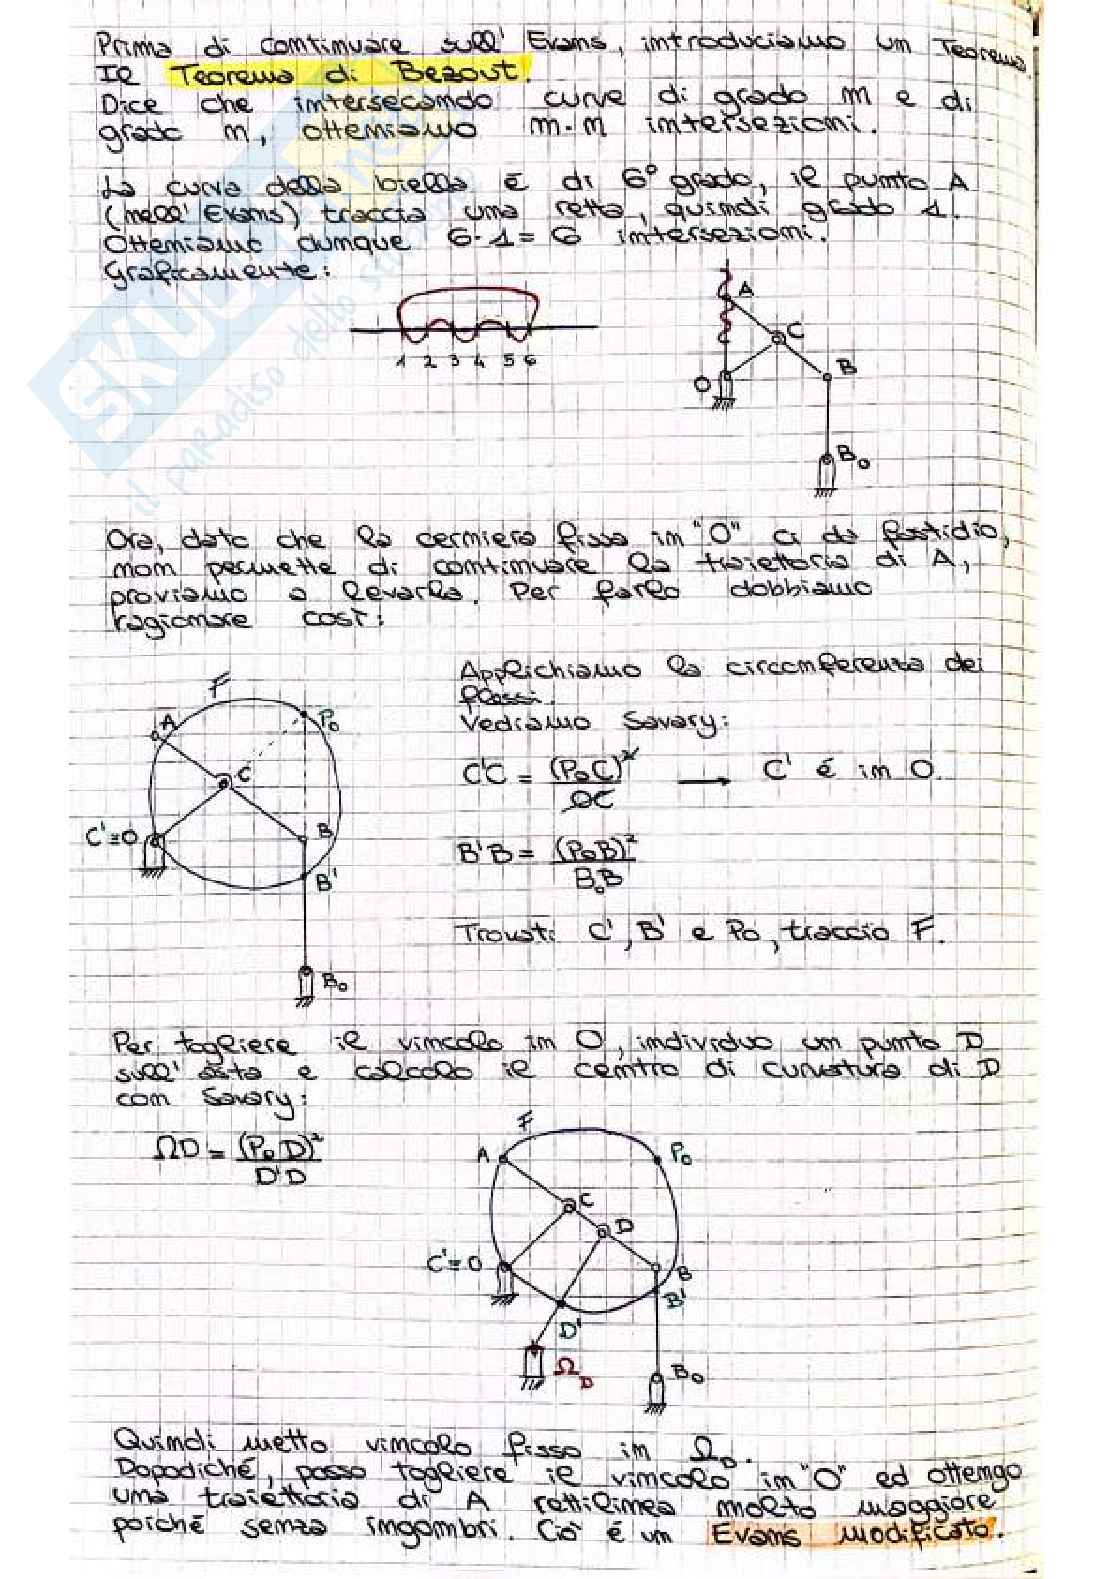 Prima di continuare sull' Evans, introduciamo un Teorema.
Il Teorema di Bezout.
Dice che intersecando curve di grado m e di
grado n, otteniamo m·n intersezioni.
La curva della biella è di 6° grado, il punto A
(nell' Evans) traccia una retta, quindi grado 1.
Otteniamo dunque 6·1=6 intersezioni.
Graficamente:
1 2 3 4 5 6
A
C
B
O
B₀
SKUOLA.net
il paradiso dello studente
Ora, dato che la cerniera fissa in "O" ci da fastidio,
non permette di continuare la traiettoria di A,
proviamo a levarla. Per farlo dobbiamo
ragionare così:
Applichiamo la circonferenza dei
flessi.
Vediamo Savary:
C'C = (P₀C)² / OC → C' é in O.
B'B = (P₀B)² / B₀B
Trovati C', B' e P₀, traccio F.
F
A
P₀
C
C'≡O
B
B'
B₀
Per togliere il vincolo in O, individuo un punto D
sull' asta e calcolo il centro di curvatura di D
con Savary:
ΩD = (P₀D)² / D'D
F
A
P₀
C
D
C'≡O
B
B'
D'
Ω_D
B₀
Quindi metto vincolo fisso in Ω_D.
Dopodiché, posso togliere il vincolo in "O" ed ottengo
una traiettoria di A rettilinea molto maggiore
poiché senza ingombri. Ciò é un Evans modificato.